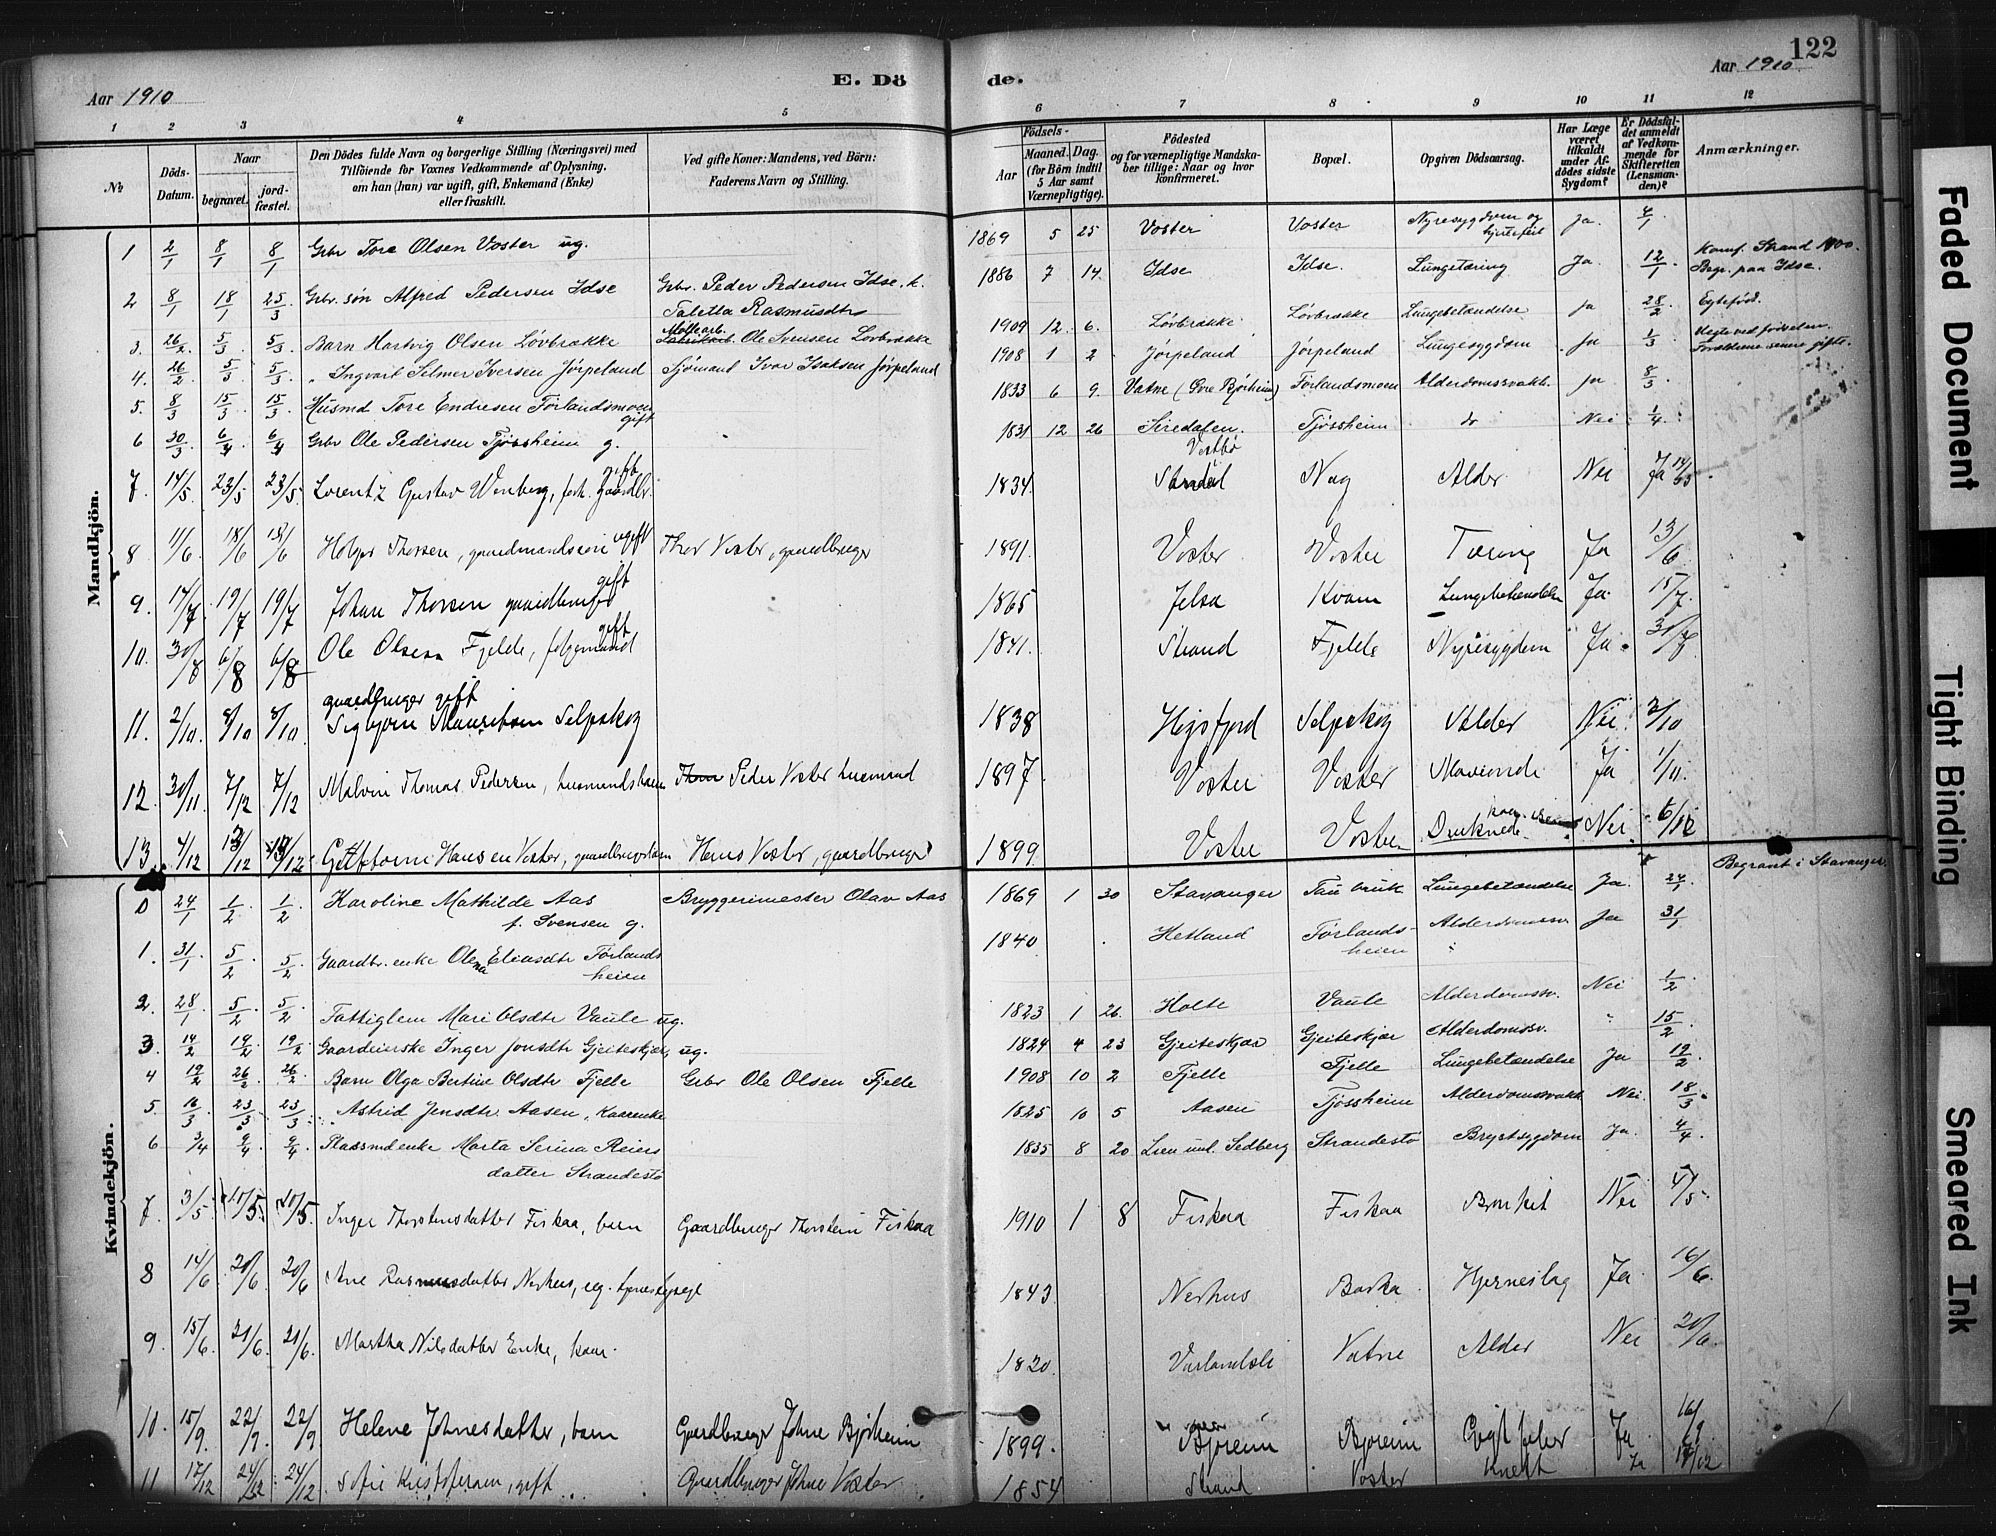 122
Aar 1910
E. Dö
de.
Aar 1910
1 2 3 4 5
6 7 8 9 10 11 12
№
Döds-Datum.
Naar
begravet.
jord-fæstet.
Den Dödes fulde Navn og borgerlige Stilling (Næringsvei) med
Tilföiende for Voxnes Vedkommende af Oplysning,
om han (hun) var ugift, gift, Enkemand (Enke)
eller fraskilt.
Ved gifte Koner: Mandens, ved Börn:
Faderens Navn og Stilling.
Aar
Födsels-
Maaned. Dag.
(for Börn indtil
5 Aar samt
Værnepligtige).
Födested
og for værnepligtige Mandska-
ber tillige: Naar og hvor
konfirmeret.
Bopæl.
Opgiven Dödsaarsag.
Har Læge
været
tilkaldt
under Af-
dödes sidste
Sygdom?
Er Dödsfal-
det anmeldt
af Vedkom-
mende for
Skifteretten
(Lensman-
den)?
Anmærkninger.
Mandkjön.
1 2/1 8/1 8/1 Gbr Tore Olsen Voster ug. 1869 5 25 Voster Voster Nyresygdom og hjertefeil Ja. 4/1
2 8/1 18/1 25/3 Gbr. søn Alfred Pedersen Idse Gbr. Peder Pedersen Idse. k. Taletta Rasmusdtr 1886 7 14. Idse Idse. Lungetæring Ja 12/1 Konf. Strand 1900. Begr. paa Idse.
3. 26/2 5/3 5/3 Barn Hartvig Olsen Løvbrække Ole Svensen Løvbrække 1909 12. 6. Løvbrække Løvbrække Lungebetændelse ja 28/2 Egtefød.
4. 26/2 5/3 5/3 " Ingvart Selmer Iversen Jørpeland Sjømand Ivar Isaksen Jørpeland 1908 1 2 Jørpeland Jørpeland Lungesygdom ja 1/3 Uegte ved fødselen. Forældrene senere gifte.
5. 8/3 15/3 15/3 Husmd Tore Endresen Førlandsmoen gift 1833 6 9. Vatne (Øvre Bjørheim) Førlandsmoen Alderdomssvakh. ja 8/3
6 30/3 6/4 6/4 Gbr Ole Pedersen Tjøssheim g. 1831 12 26 Siredalen. Tjøssheim do Nei 1/4
7. 14/5 23/5 23/5 Lorentz Gustav Wenberg, forh. gaardbr. gift 1834. Vestbø Strand Nag Alder Nei Ja 14/5
8 11/6 18/6 18/6 Holger Thorsen, gaardmandssøn ugift Thor Voster, gaardbruger 1891. Voster Voster Tæring Ja 13/6
9. 14/7 19/7 19/7 Johan Thorsen gaardbruger gift 1865 Jelsa Kvam Lungebetændelse Ja 15/7
10. 30/7 6/8 6/8 Ole Olsen Fjelde, folgemand gift 1841. Strand Fjelde Nyresygdom Ja 31/7
11. 2/10 8/10 8/10 gaardbruger gift Sigbjørn Mauritsen Selpskog 1838 Høgsfjord Selpskog Alder Nei 3/10
12. 30/11 7/12 7/12 Malvin Thomas Pedersen, husmandsbarn Peder Voster husmand 1897. Voster Voster Maveonde Ja 1/11.
13. 4/12 13/12 13/12 Hansen Voster, gaardbrugerbarn Hans Voster, gaardbruger 1899 Voster Voster Druknede Nei 6/12
Kvindekjön.
0 24/1 1/2 1/2 Karoline Mathilde Aas f. Svensen g. Bryggerimester Olav Aas 1869 1 30 Stavanger Tau bruk Lungebetændelse Ja 24/1 Begravet i Stavanger.
1. 31/1 5/2 5/2 Gaardbr. enke Olena Eliasdtr Førlandsheien 1840 Hetland Førlandsheien Alderdomssv. Ja 31/1
2. 28/1 5/2 5/2 Fattiglem Mari Olsdtr Vaule ug. 1823 1 26. Holte Vaule Alderdomssv. Nei 1/2
3. 14/2 19/2 19/2 Gaardeierske Inger Jonsdtr Gjeiteskjær, ug. 1824 4 23 Gjeiteskjær Gjeiteskjær Alderdomssv. " 15/2
4 19/2 26/2 26/2 Barn Olga Bertine Olsdtr Fjelle Gbr Ole Olsen Fjelle 1908 10 2 Fjelle Fjelle Lungebetændelse Ja 19/2
5. 16/3 23/3 23/3 Astrid Jensdtr. Aasen, kaarenke 1825 10 5 Aasen Tjøssheim Alderdomssvakh Nei 18/3
6 3/4 9/4 9/4 Plassmdenke Marta Serina Reiersdatter Strandestø 1835 8 20 Lien Sedberg Strandestø Brystsygdom Ja 4/4
7. 3/5 10/5 10/5 Inger Thorstensdatter Fiskaa, barn Gaardbruger Thorstein Fiskaa 1910 1 8 Fiskaa Fiskaa Bronkit Nei 4/5
8 14/6 20/6 20/6 Ane Rasmusdatter Nerhus, ug. 1843 Nerhus Barka Hjerneslag Ja 16/6
9 15/6 21/6 21/6 Martha Nilsdatter Enke, kaar. 1820 Vatne Alder Nei 20/6
10. 15/9. 22/9 22/9 Helene Johnesdatter, barn Gaardbruger Johne Bjørheim 1899. Bjøreim Bjøreim Ja 16/9
11 17/12 24/12 24/12 Sofie Kristofersen, gift Gaardbruger Johne Voster 1854 Strand Voster Kræft Ja 17/12
Faded Document
Tight Binding
Smeared Ink